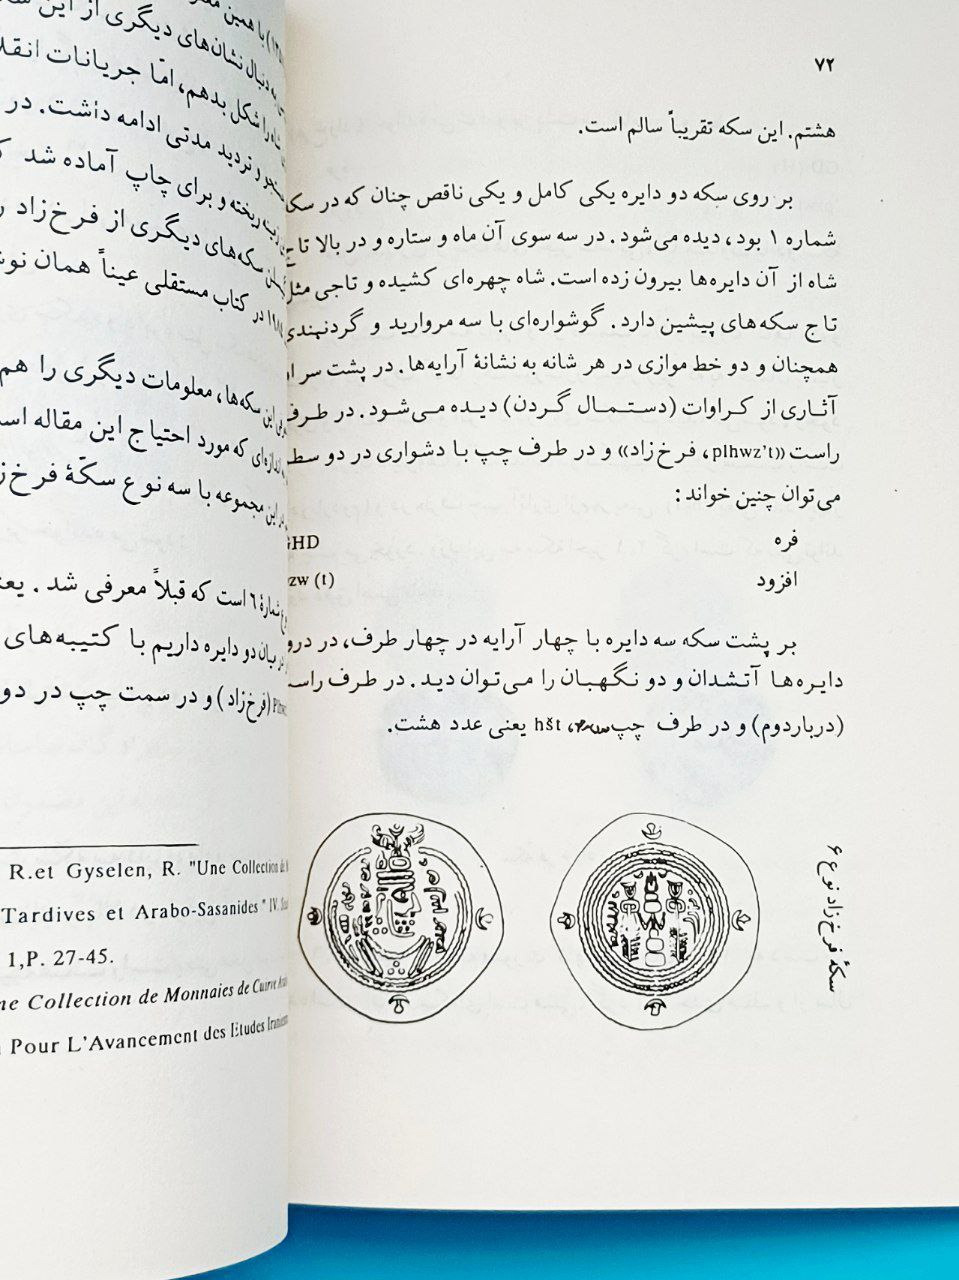 ۷۲
هشتم. این سکه تقریباً سالم است.
بر روی سکه دو دایره یکی کامل و یکی ناقص چنان که در سکه
شماره ۱ بود، دیده می‌شود. در سه سوی آن ماه و ستاره و در بالا تاج
شاه از آن دایره‌ها بیرون زده است. شاه چهره‌ای کشیده و تاجی مثل
تاج سکه‌های پیشین دارد. گوشواره‌ای با سه مروارید و گردنبندی
همچنان و دو خط موازی در هر شانه به نشانهٔ آرایه‌ها. در پشت سر
آثاری از کراوات (دستمال گردن) دیده می‌شود. در طرف
راست «plhwz't، فرخ‌زاد» و در طرف چپ با دشواری در دو سطر
می‌توان چنین خواند:
فره GHD
افزود zw (t)
بر پشت سکه سه دایره با چهار آرایه در چهار طرف، در درون
دایره‌ها آتشدان و دو نگهبان را می‌توان دید. در طرف راست
(درباردوم) و در طرف چپ، hšt یعنی عدد هشت.
سکهٔ فرخ‌زاد نوع ۶
با همین
به دنبال نشان‌های دیگری از این
را شکل بدهم، امّا جریانات
و تردید مدتی ادامه داشت. در
ریخته و برای چاپ آماده شد
سکه‌های دیگری از فرخ‌زاد
در کتاب مستقلی عیناً همان
این سکه‌ها، معلومات دیگری را هم
که مورد احتیاج این مقاله
در این مجموعه با سه نوع سکّهٔ
شمارهٔ ۶ است که قبلاً معرفی شد. یعنی
دو دایره داریم با کتیبه‌های
(فرخ‌زاد) و در سمت چپ در دو
R.et Gyselen, R. "Une Collection
Tardives et Arabo-Sasanides" IV.
1,P. 27-45.
Collection de Monnaies de Cuivre
Pour L'Avancement des Etudes